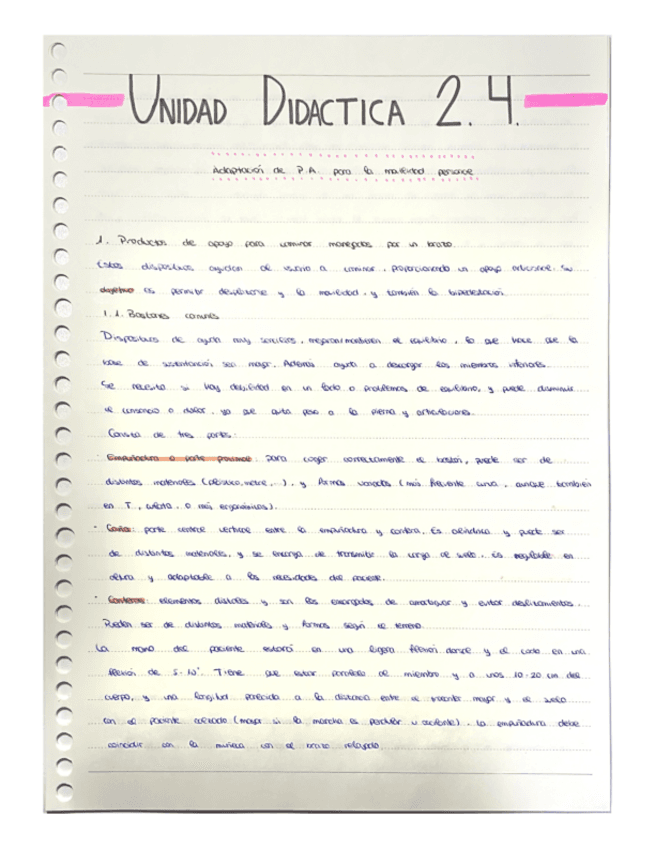 UNIDAD DIDACTICA 2.4.
Adaptación de P.A. para la movilidad personal
1. Productos de apoyo para caminar manejados por un brazo.
Estos dispositivos ayudan al usuario a caminar, proporcionando un apoyo adicional. Su
objetivo es permitir desplazarse y la movilidad, y también la bipedestación.
1.1. Bastones comunes
Dispositivos de ayuda muy sencillos, mejoran/mantienen el equilibrio, lo que hace que la
base de sustentación sea mayor. Además ayuda a descargar los miembros inferiores.
Se necesita si hay debilidad en un lado o problemas de equilibrio, y puede disminuir
el cansancio o dolor, ya que quita peso a la pierna y articulaciones.
Consta de tres partes:
· Empuñadura o parte proximal: para coger correctamente el bastón, puede ser de
distintos materiales (plástico, metal, ...), y formas variadas (más frecuente curva, aunque también
en T, abierta, o más ergonómicas).
· Caña: parte central vertical entre la empuñadura y contera. Es cilíndrica y puede ser
de distintos materiales, y se encarga de transmitir la carga al suelo. Es regulable en
altura y adaptable a las necesidades del paciente.
· Conteras: elementos distales y son los encargados de amortiguar y evitar deslizamientos.
Pueden ser de distintos materiales y formas según el terreno.
La mano del paciente estará en una ligera flexión dorsal y el codo en una
flexión de 5-10°. Tiene que estar paralelo al miembro y a unos 10-20 cm del
cuerpo, y una longitud parecida a la distancia entre el trocánter mayor y el suelo
con el paciente calzado (mayor si la marcha es pendular u oscilante). La empuñadura debe
coincidir con la muñeca con el brazo relajado.